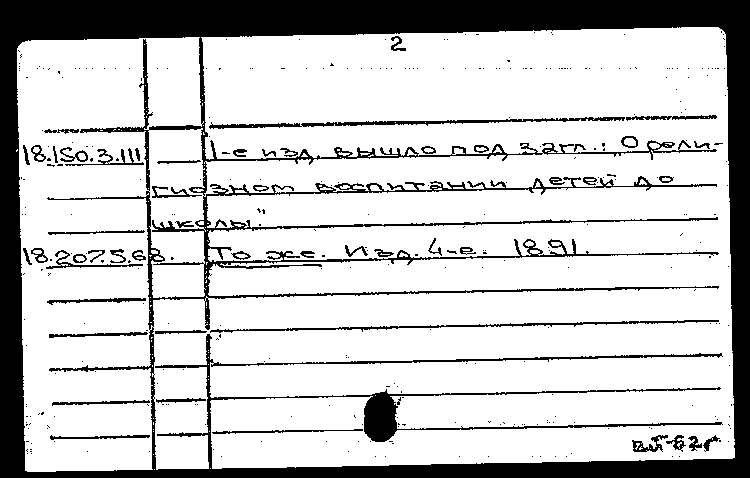 2
18.150.3.111 1-е изд. вышло под загл.: „О рели-
гиозном воспитании детей до
школы."
18.207.5.68. То же. Изд. 4-е. 1891.